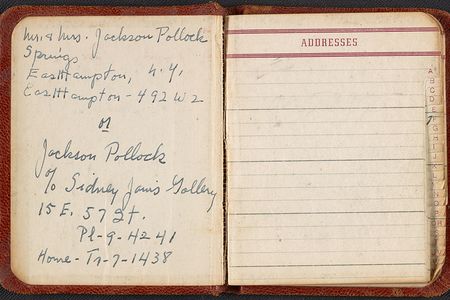 Mr. & Mrs. Jackson Pollock
Springs
EastHampton, N.Y.
EastHampton - 492 W 2
or
Jackson Pollock
c/o Sidney Janis Gallery
15 E. 57 St.
Pl-9-4241
Home - Tr-7-1438
ADDRESSES
A
B
C
D
E
F
G
H